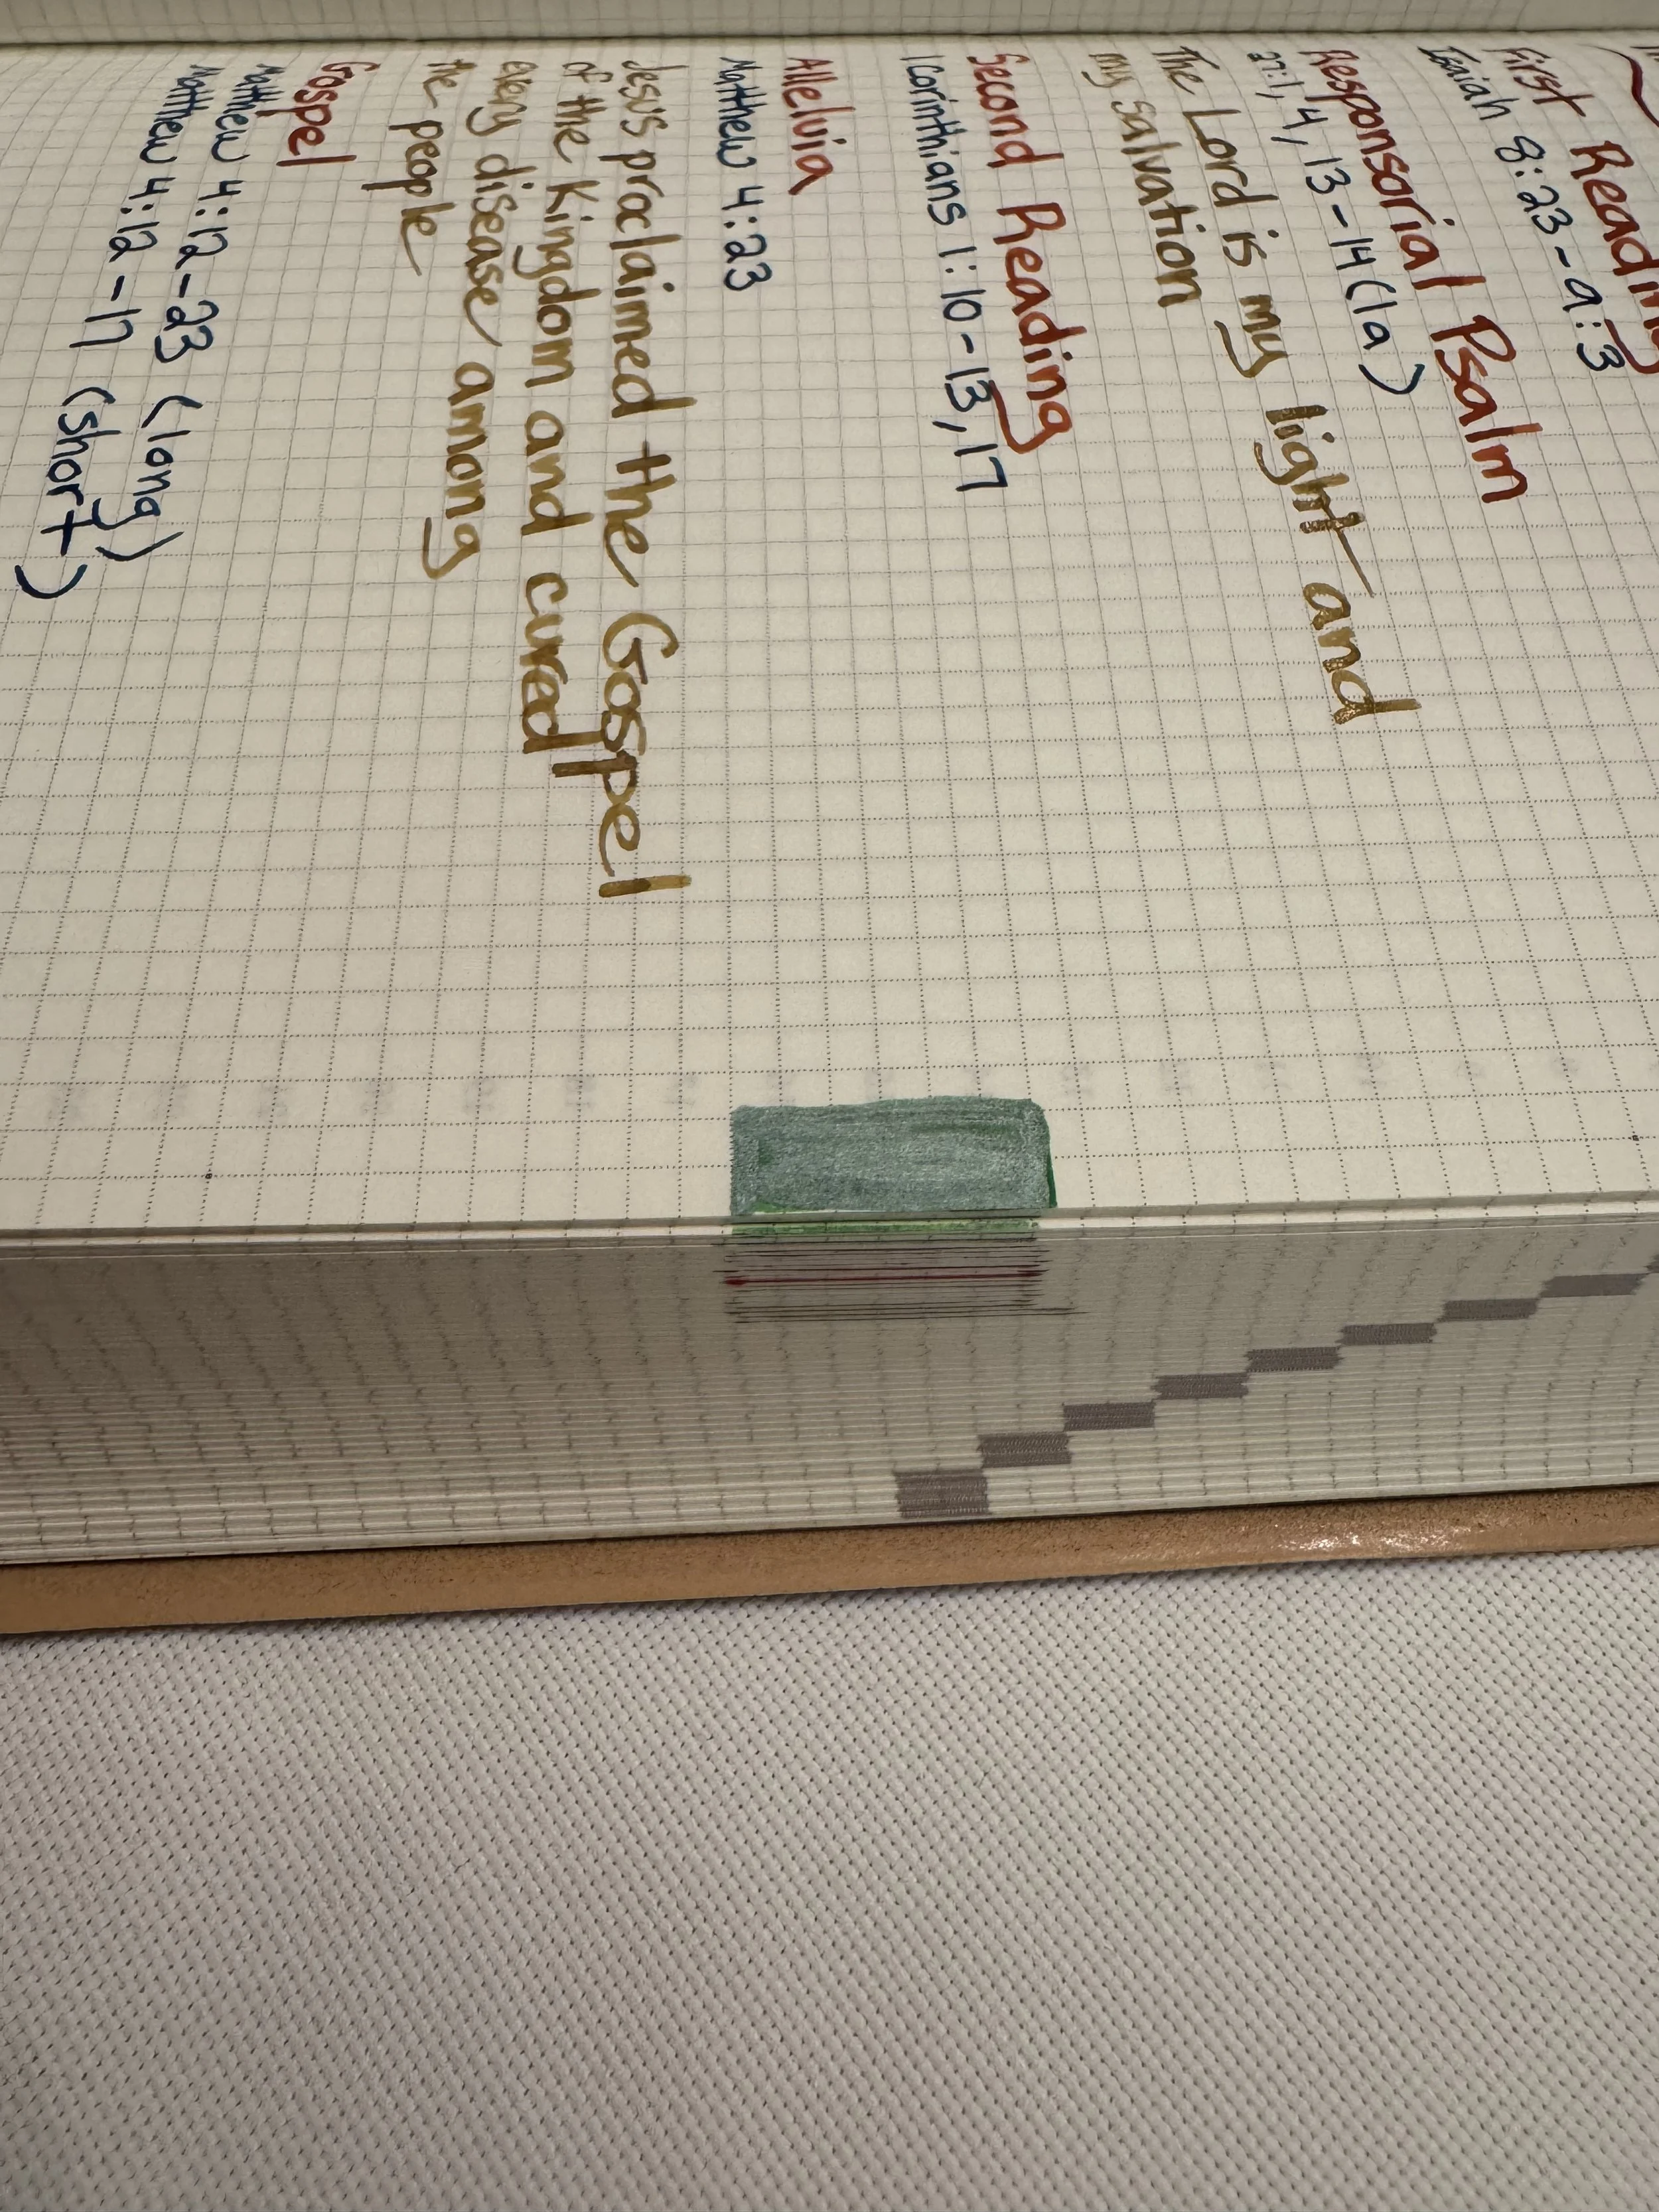 First Reading
Isaiah 8:23-9:3
Responsorial Psalm
27:1, 4, 13-14 (1a)
The Lord is my light and
my salvation
Second Reading
1 Corinthians 1:10-13, 17
Alleluia
Matthew 4:23
Jesus proclaimed the Gospel
of the Kingdom and cured
every disease among
the people
Gospel
Matthew 4:12-23 (long)
Matthew 4:12-17 (short)